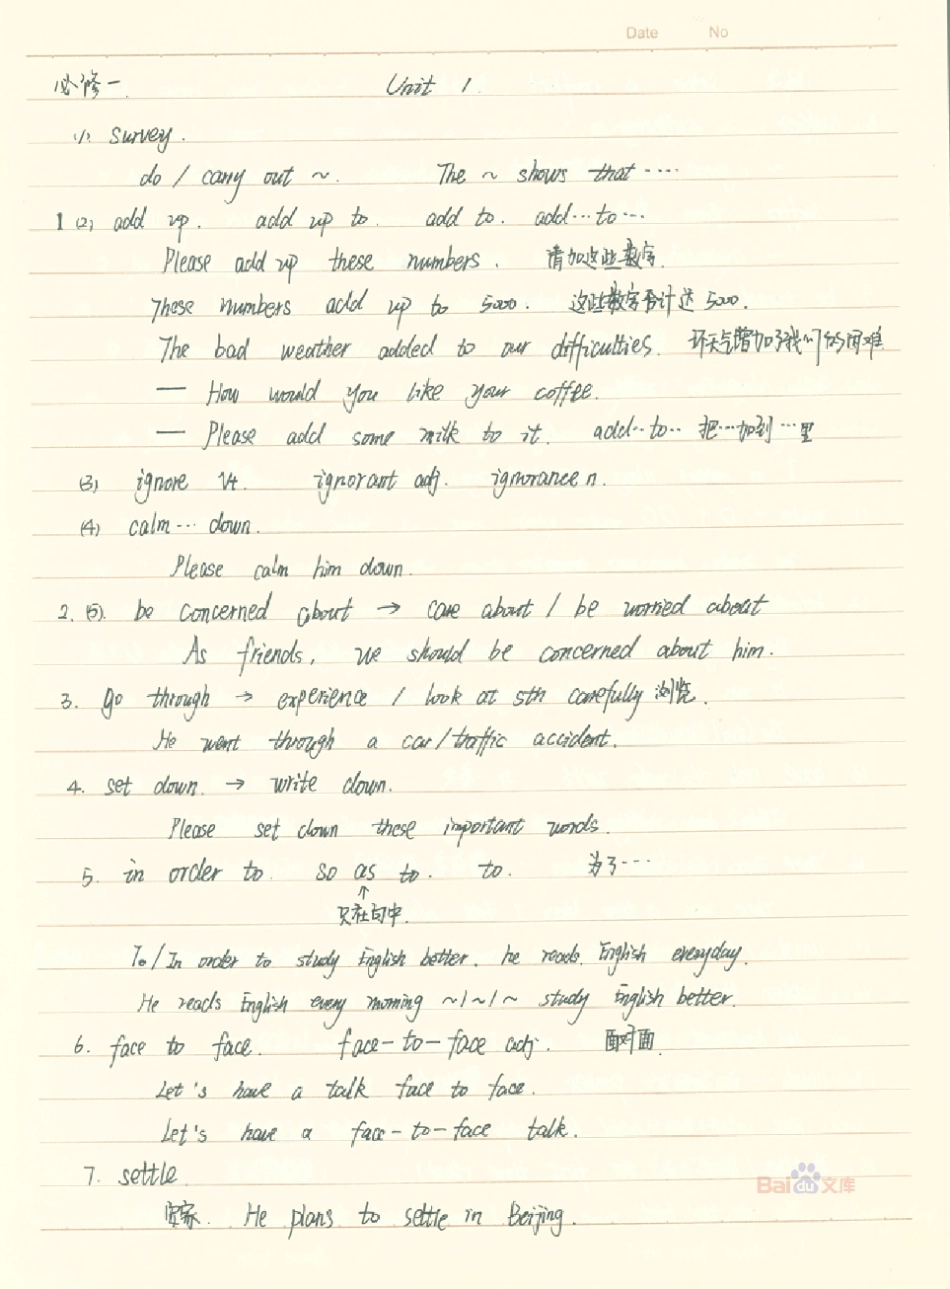 Date No
必修一. Unit 1.
(1). survey.
do / carry out ~. The ~ shows that ····
1 (2) add up. add up to. add to. add···to···
Please add up these numbers. 请加这些数字.
These numbers add up to 5000. 这些数字合计达 5000.
The bad weather added to our difficulties. 坏天气增加了我们的困难
— How would you like your coffee.
— Please add some milk to it. add··to·· 把···加到···里
(3) ignore vt. ignorant adj. ignorance n.
(4) calm··· down.
Please calm him down.
2. (5). be concerned about → care about / be worried about
As friends, we should be concerned about him.
3. go through → experience / look at sth carefully 浏览.
He went through a car/traffic accident.
4. set down. → write down.
Please set down these important words.
5. in order to. so as to. to. 为了···
↑
只在句中.
To/In order to study English better. he reads English everyday.
He reads English every morning ~/~/~ study English better.
6. face to face. face-to-face adj. 面对面.
Let's have a talk face to face.
Let's have a face-to-face talk.
7. settle.
安家. He plans to settle in Beijing.
Baidu文库